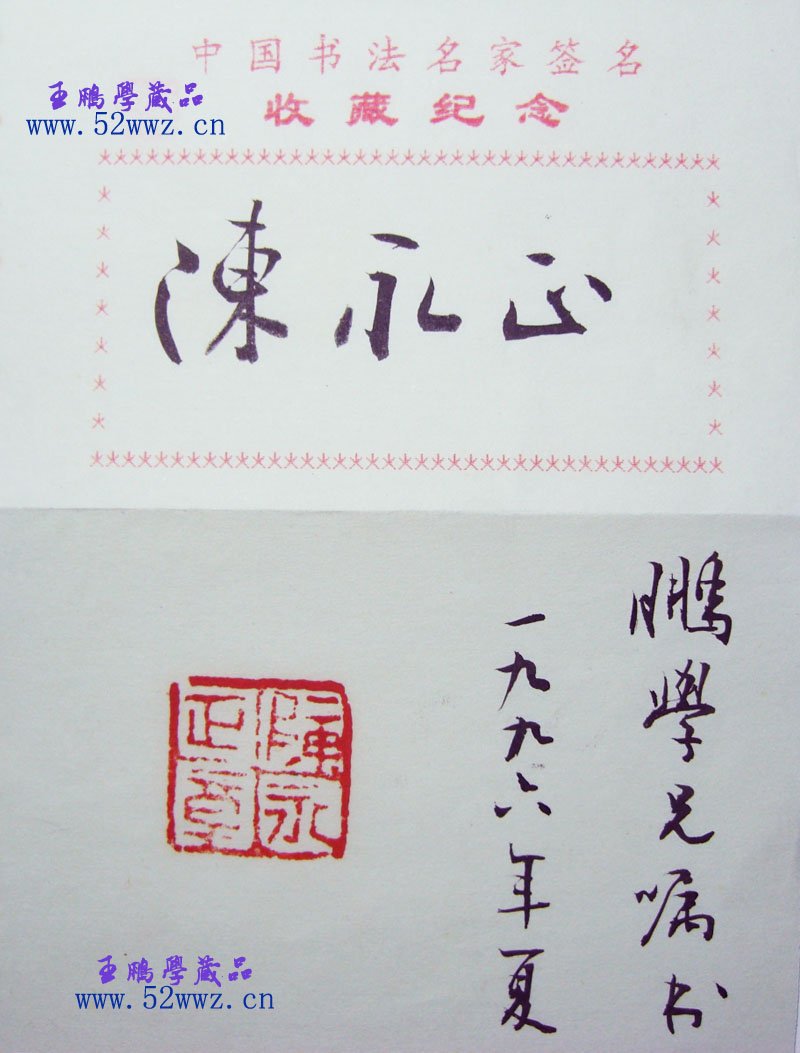 中国书法名家签名
王鵬學蔵品
收藏纪念
www.52wwz.cn
陳永正
鵬學兄嘱书
一九九六年夏
陳永
正章
王鵬學蔵品
www.52wwz.cn